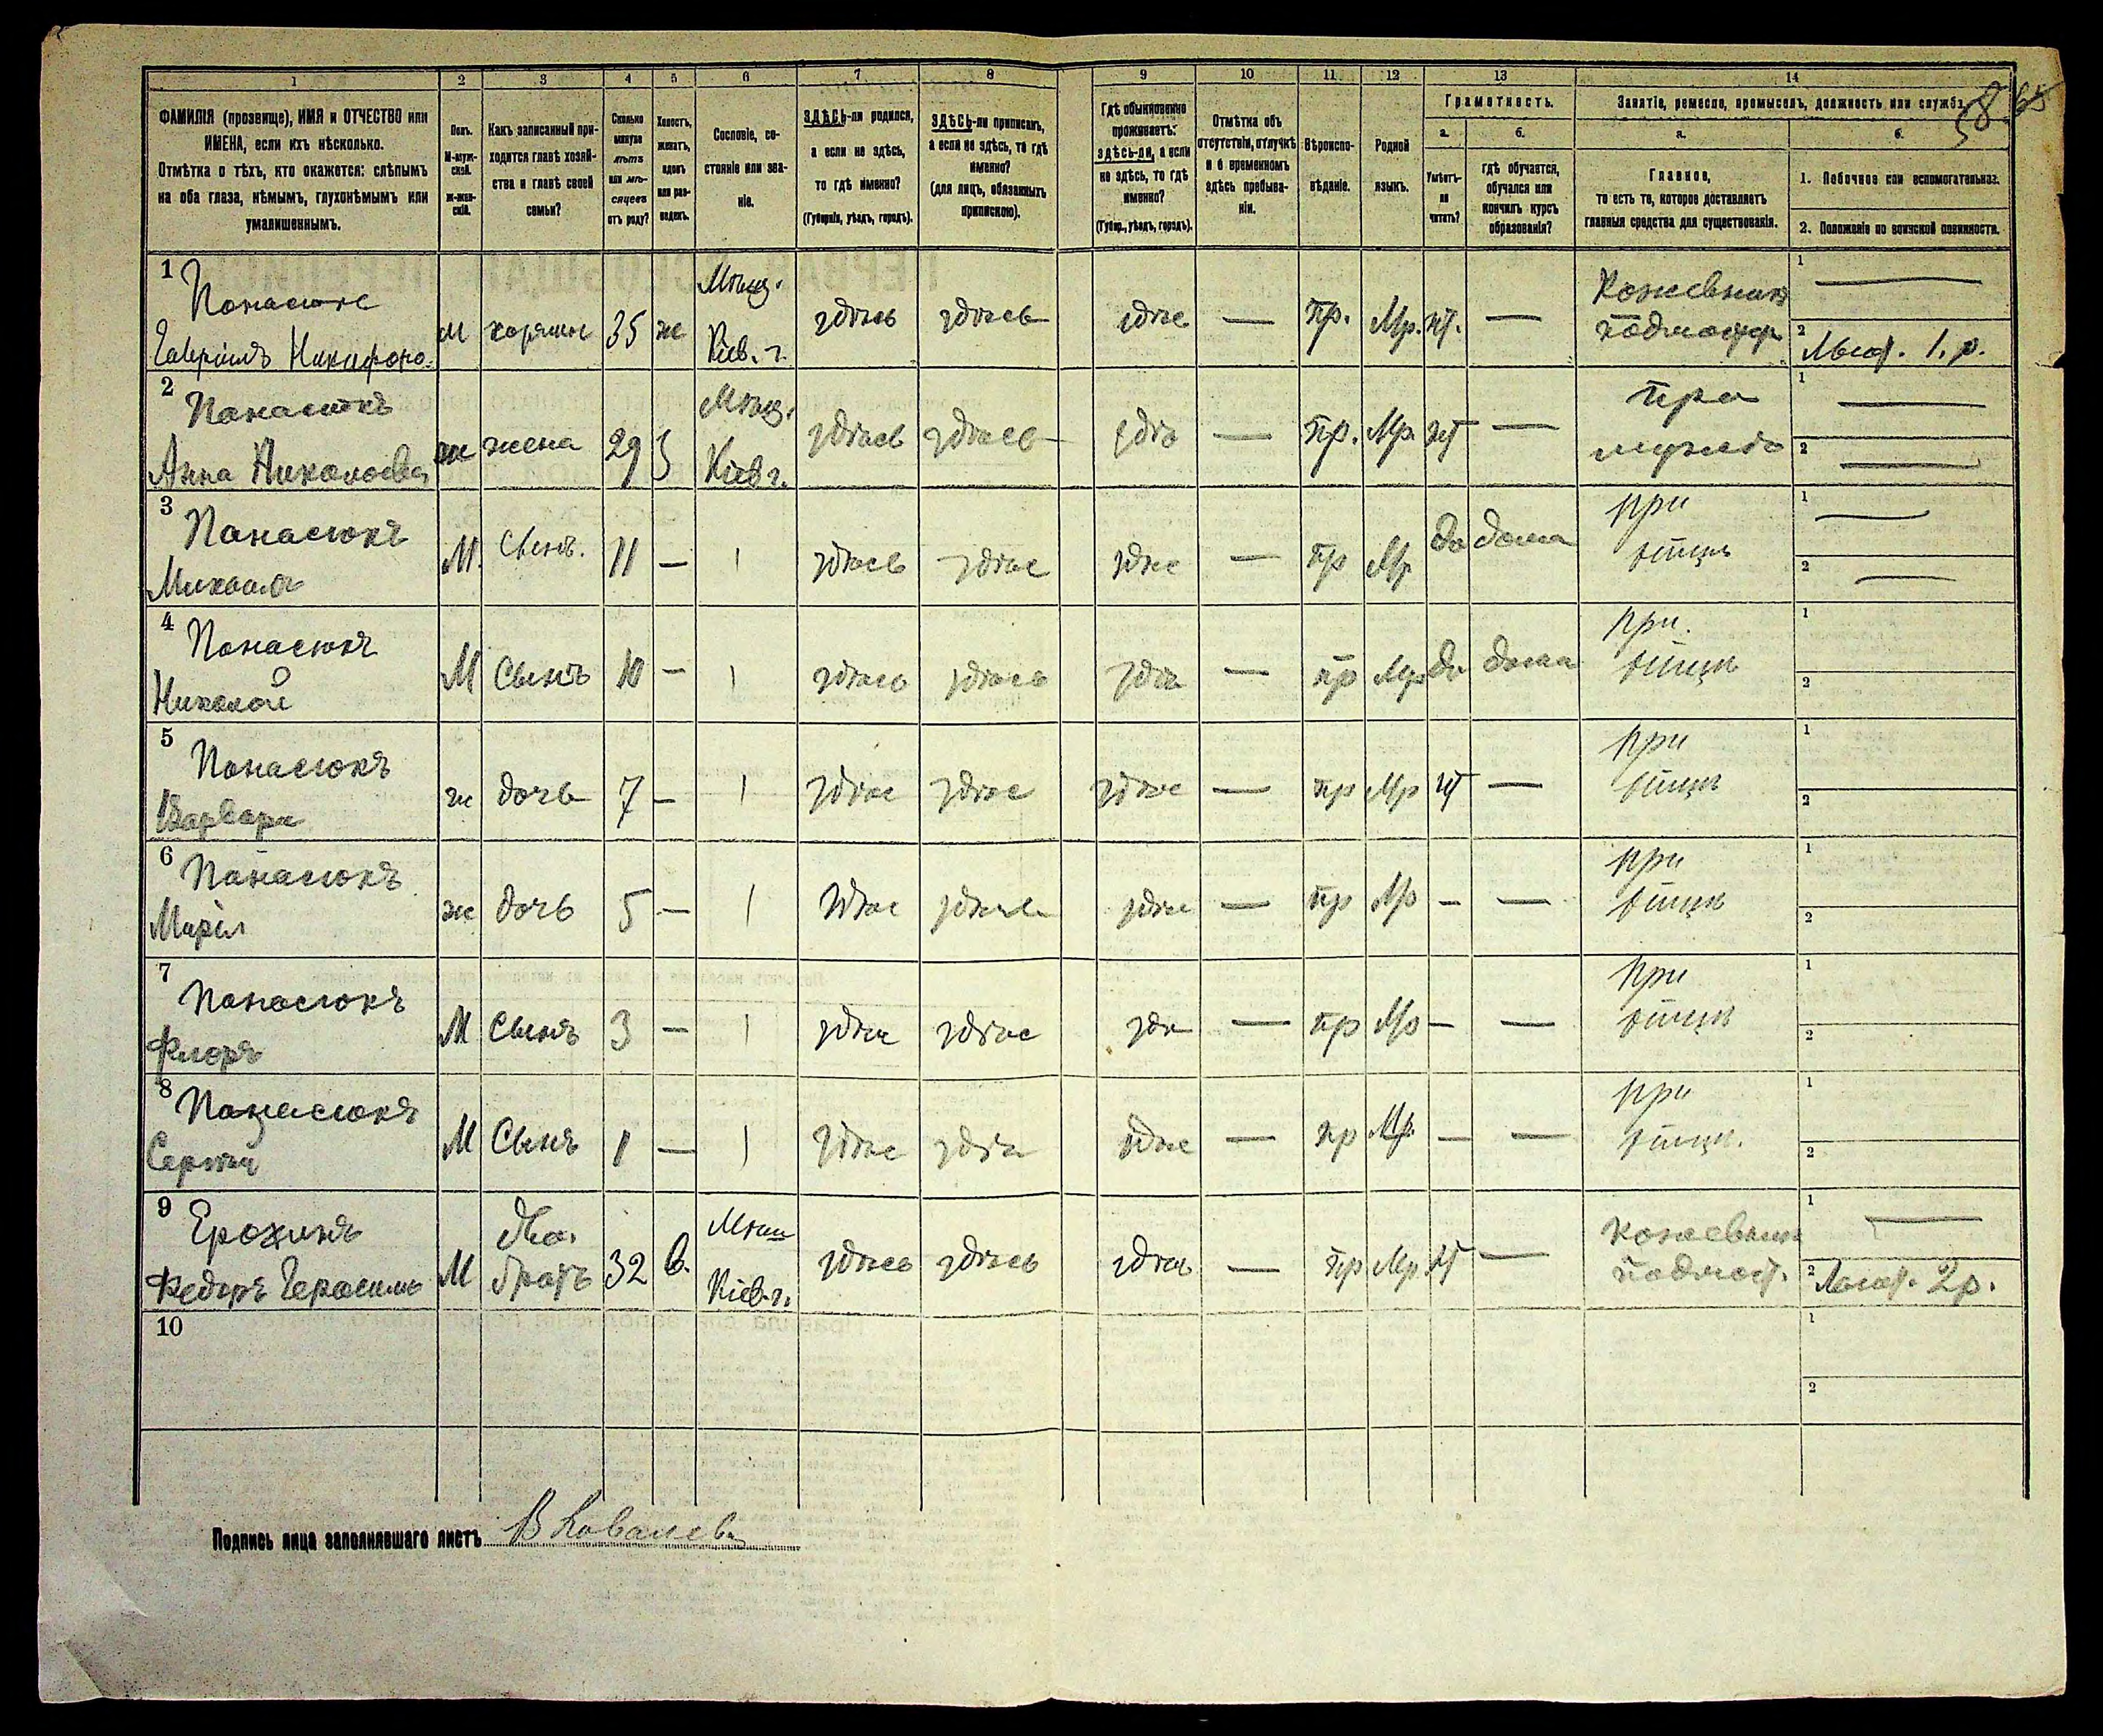 1 2 3 4 5 6 7 8 9 10 11 12 13 14
58
ФАМИЛІЯ (прозвище), ИМЯ и ОТЧЕСТВО или
ИМЕНА, если ихъ нѣсколько.
Отмѣтка о тѣхъ, кто окажется: слѣпымъ
на оба глаза, нѣмымъ, глухонѣмымъ или
умалишеннымъ.
Полъ.
М-муж-
ской.
ж-жен-
скій.
Какъ записанный при-
ходится главѣ хозяй-
ства и главѣ своей
семьи?
Сколько
минуло
лѣтъ
или мѣ-
сяцевъ
отъ роду?
Холостъ,
женатъ,
вдовъ
или раз-
веденъ.
Сословіе, со-
стояніе или зва-
ніе.
ЗДѢСЬ-ли родился,
а если не здѣсь,
то гдѣ именно?
(Губернія, уѣздъ, городъ).
ЗДѢСЬ-ли приписанъ,
а если не здѣсь, то гдѣ
именно?
(для лицъ, обязанныхъ
припискою).
Гдѣ обыкновенно
проживаетъ:
здѣсь-ли, а если
не здѣсь, то гдѣ
именно?
(Губер., уѣздъ, городъ).
Отмѣтка объ
отсутствіи, отлучкѣ
и о временномъ
здѣсь пребыва-
ніи.
Вѣроиспо-
вѣданіе.
Родной
языкъ.
Грамотность.
а.
Умѣетъ-
ли
читать?
б.
гдѣ обучается,
обучался или
кончилъ курсъ
образованія?
Занятіе, ремесло, промыселъ, должность или служба.
а.
Главное,
то есть то, которое доставляетъ
главныя средства для существованія.
б.
1. Побочное или вспомогательное.
2. Положеніе по воинской повинности.
1 Панасюкъ Мѣщ. Кожевник 1 —
Гавріилъ Никифоро. М хозяинъ 35 ж Кіев. г. здѣсь здѣсь здѣс — пр. Мр. нт. — 2 1. р.
2 Панасюкъ Мѣщ. при 1 —
Анна Николаева ж жена 29 з Кіев г. здѣсь здѣсь здѣ — пр. Мр. нт — мужѣ 2 —
3 Панасюкъ при 1 —
Михаилъ М. Сынъ. 11 — | здѣсь здѣс здѣс — пр Мр да дома отцѣ 2 —
4 Панасюкъ при. 1
Николай М Сынъ 10 — | здѣсь здѣсь здѣс — пр Мр да дома отцѣ 2
5 Панасюкъ при 1
Варвара ж дочь 7 — | здѣс здѣс здѣс — пр Мр нт — отцѣ 2
6 Панасюкъ при 1
Марія ж дочь 5 — | здѣс здѣсь здѣс — пр Мр — — отцѣ 2
7 Панасюкъ при 1
Флоръ М Сынъ 3 — | здѣс здѣс здѣ — пр Мр — — отцѣ 2
8 Панасюкъ при 1
Сергѣй М Сынъ 1 — | здѣс здѣс здѣс — пр Мр. — — отцѣ. 2
9 Ерохинъ Дво. Мѣщ кожевник 1 —
Федоръ Герасимъ М братъ 32 в. Кіев. г. здѣсь здѣсь здѣсь — пр Мр. нт — 2 2 р.
10 1
2
Подпись лица заполнявшаго листъ В Ковалевъ